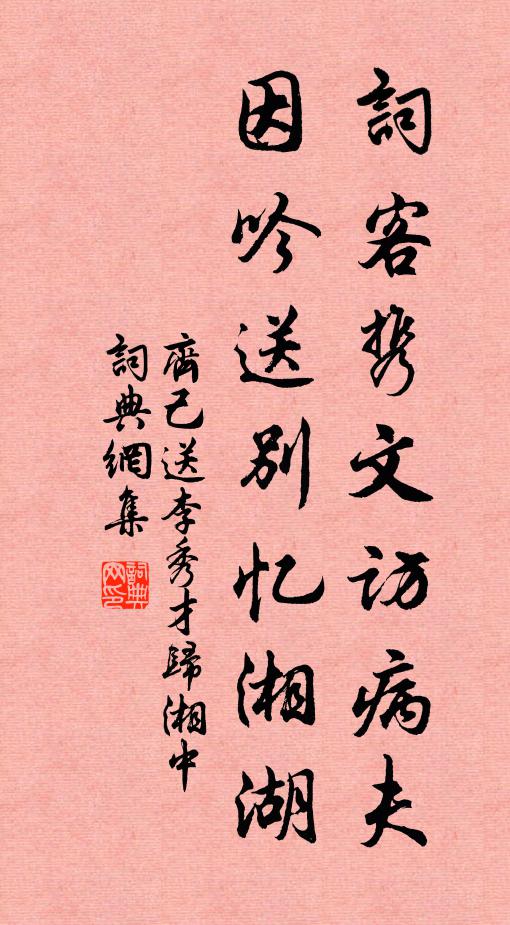 詞客携文访病夫
因吟送别忆湘湖
齊己送李秀才歸湘中
詞典網集
詞典
网印